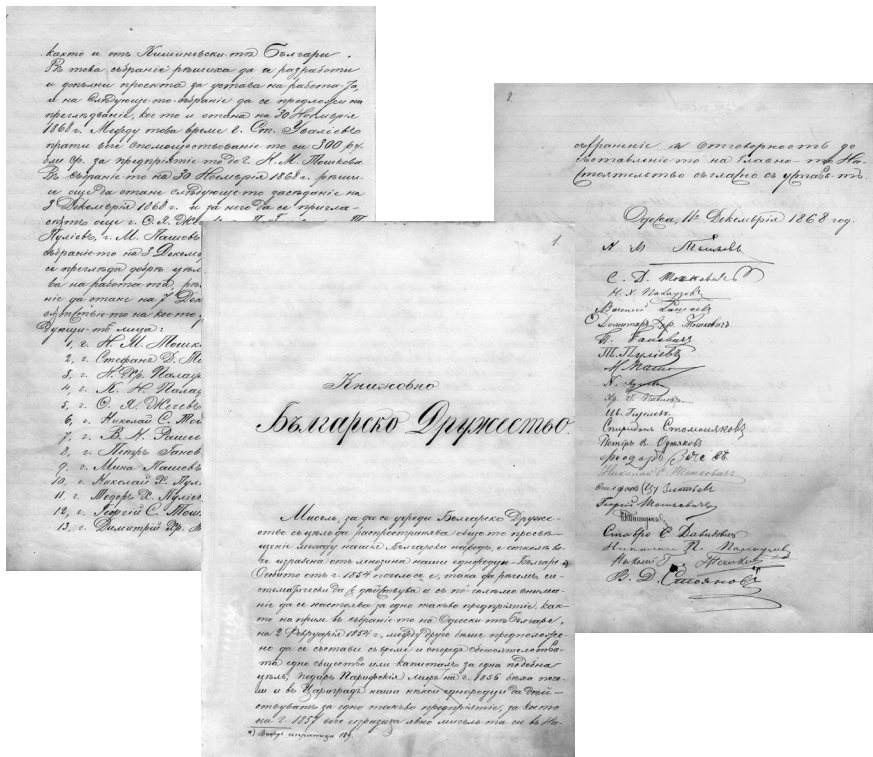 както и отъ Кишиневски-тѣ Българи.
Въ това събранiе рѣшиха да се разработи
и допълни проекта за устава на работа-та,
и на слѣдующе-то събранiе да се предложи на
преглѣдванiе, кое-то и стана на 30 Ноемврiя
1868 г. Между това време г. Ст.
прати вече спомоществованiе-то си 300 ру-
бли ср. за предпрiятiе-то до г. Н. М. Тошкова.
Въ събранiе-то на 30 Ноемврiя 1868 г. рѣши-
се още да стане слѣдующе-то засѣданiе на
3 Декемврiя 1868 и за него да се пригла-
сятъ още г. О. Я.
Пулiевъ, г. М. Пашовъ
събранiе-то на 3 Декем
се преглѣда добрѣ цѣл
ва на работа-та, рѣш
нiе да стане на 7 Дек
на кое-то
дующи-тѣ лица:
1, г. Н. М. Тошк
2, г. Стефанъ Д. То
3, г. Н. Хр. Палау
4, г. К. Н. Пала
5, г. О. Я.
6, г. Николай С. То
7, г. В. Н. Рашее
8, г. Петръ Ганов
9, г. Мина Пашовъ
10, г. Николай Х. Пул
11, г. Тодоръ Х. Пулiе
12, г. Георгiй С. Тош
13, г. Димитрiй Хр.
1.
Книжовно
Българско Дружество.
Мисъль, за да се уреди Българско Друже-
ство съ цѣль да распространява общо-то просвѣ-
щенiе между нашiй Български народъ, е отколѣ ве-
че изразена отъ мнозина наши еднородци-Българе *)
Особито отъ 1854 почело се е, така да речемъ, си-
стематически да дѣйствува и съ по голѣмо внима-
нiе да се настоява за едно такъво предпрiятiе, как-
то на прим. въ събранiе-то на Одески-тѣ Българе,
на 2 Февруарiя 1854 г., между друго бѣше предположе-
но да се състави съ време и споредъ обстоятелства-
та едно общество или капиталъ за една подобна
цѣль; подиръ Парижскiя миръ на г. 1856 бѣха поче-
ли и въ Цариградъ наши нѣкои еднородци да дѣй-
ствуватъ за едно такъво предпрiятiе, за което
на г. 1857 вече изразиха явно мисъль-та си въ
*) Виждъ страница
8.
събранiе и отговорность до
съставленiе-то на Главно-то На-
стоятелство съгласно съ уставъ-тъ.
Одеса, Декемврiя 1868 год.
Н М Тошковъ
С. Д. Тошковичъ
Н. Х. Палаузовъ
Василiй Рашеевъ
Димитаръ Хр. Тошковичъ
П. Гановичъ
Т. Пулiевъ
М. Пашо
Хр. Павловъ
Спиридонъ Стомоняковъ
Петръ В. Оджаковъ
Николай С. Тошковичъ
Стефанъ
Георгiй Тошковичъ
Ставро С. Давидовичъ
Николай П.
В. Д. Стояновъ